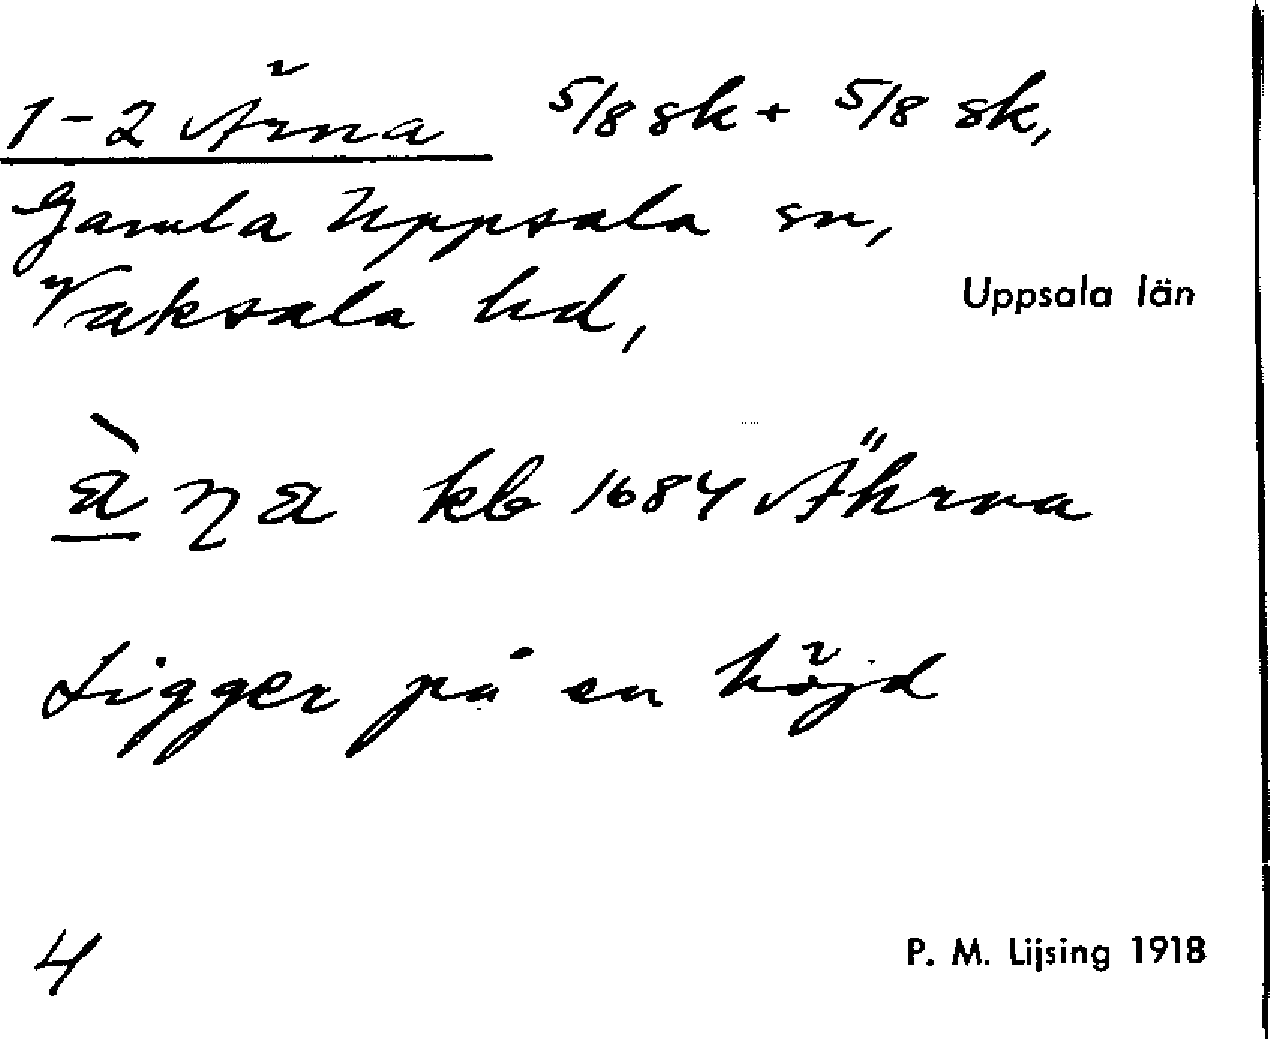 1-2 Ärna 5/8 sk + 5/8 sk,
Gamla Uppsala sn,
Vaksala hd, Uppsala län
kb 1684 Ährna
Ligger på en höjd
4 P. M. Lijsing 1918